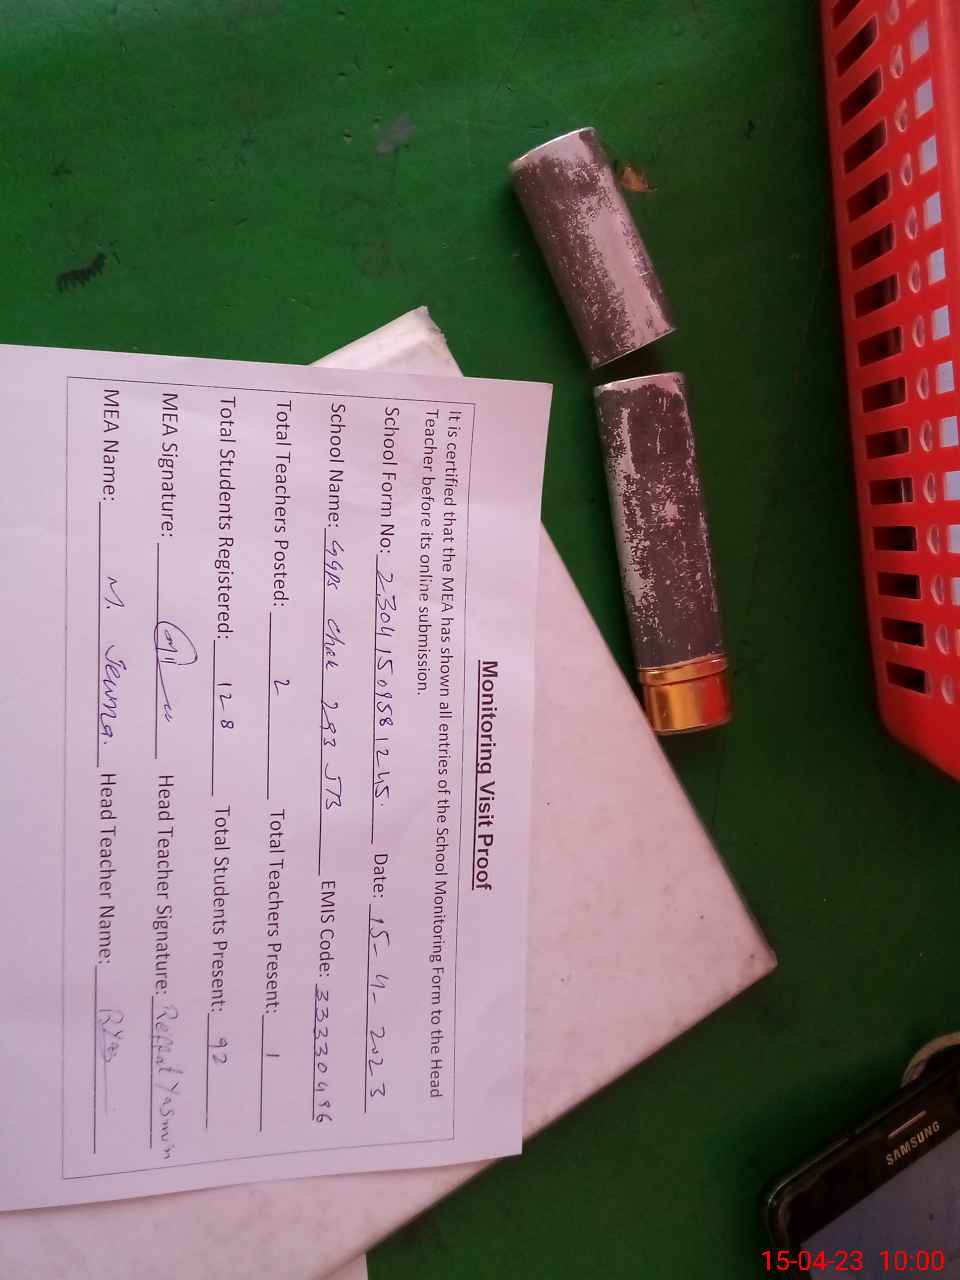 Monitoring Visit Proof
It is certified that the MEA has shown all entries of the School Monitoring Form to the Head
Teacher before its online submission.
School Form No: 23041509581245. Date: 15-4-2023
School Name: GGPS Chak 293 JB EMIS Code: 33330496
Total Teachers Posted: 2 Total Teachers Present: 1
Total Students Registered: 128 Total Students Present: 92
MEA Signature: Head Teacher Signature: Reffat Yasmin
MEA Name: M. Head Teacher Name: RYas
SAMSUNG
15-04-23 10:00